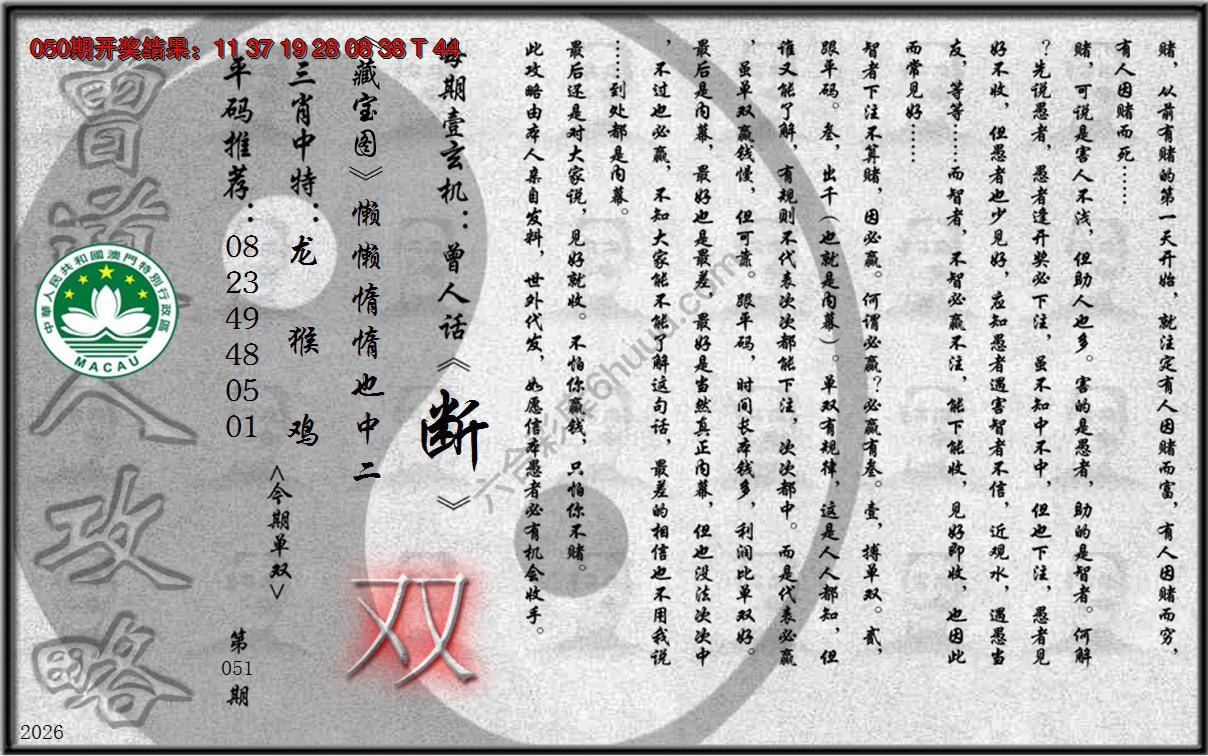 050期开奖结果：11 37 19 28 08 38 T 44
赌，从前有赌的第一天开始，就注定有人因赌而富，有人因赌而穷，
有人因赌而死……
赌，可说是害人不浅，但助人也多。害的是愚者，助的是智者。何解
？先说愚者，愚者逢开奖必下注，虽不知中不中，但也下注，愚者见
好不收，但愚者也少见好，应知愚者遇害智者不信，近观水，遇愚当
友，等等……而智者，不智必赢不注，能下能收，见好即收，也因此
而常见好……
智者下注不算赌，因必赢。何谓必赢？必赢有叁。壹，搏单双。贰，
跟平码。叁，出千（也就是内幕）。单双有规律，这是人人都知，但
谁又能了解，有规则不代表次次都能下注，次次都中。而是代表必赢
，虽单双赢钱慢，但可靠。跟平码，时间长本钱多，利润比单双好。
最后是内幕，最好也是最差，最好是当然真正内幕，但也没法次次中
，不过也必赢，不知大家能不能了解这句话，最差的相信也不用我说
……到处都是内幕。
最后还是对大家说，见好就收。不怕你赢钱，只怕你不赌。
此攻略由本人亲自发料，世外代发，如愿信本愚者必有机会收手。
每期壹玄机：曾人话《断》
《藏宝图》懒懒惰惰也中二
双
三肖中特：龙 猴 鸡
<今期单双>
平码推荐：08 23 49 48 05 01
第051期
曾道人攻略
中華人民共和國澳門特別行政區
MACAU
六合彩库6huuu.com
2026